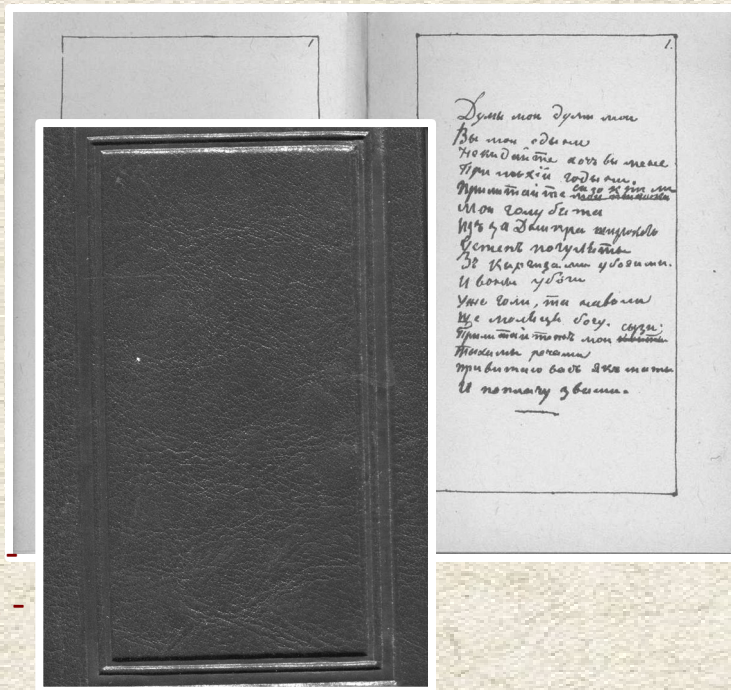 1
1.
Думы мои думы мои
Вы мои едыни
Некидайте хочъ вы мене
При лыхій годыни.
Прилитайте сызокрыли
Мои голубята
Изъ за Днипра широкого
Устепъ погуляты
Зъ Киргизами убогимы.
И воны убоги
Уже голи, та наволи
Ще моляцця богу.
Прилитайтежъ мои сызи.
Тыхимы речами
Привитаю васъ якъ маты
И поплачу звами.